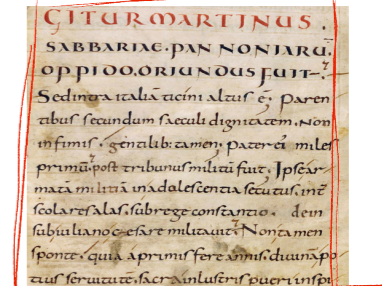 GITUR MARTINUS.
SABBARIAE. PANNONIARŪ.
OPPIDO. ORIUNDUS FUIT
Sed intra italiā ticini altus ē. Paren
tibus secundum saeculi dignitatem. Non
infimis. gentilib: tamen. Pater ei miles
primū. post tribunus militū fuit. Ipse ar
matā militiā in adolescentia secutus. int̄
scolares alas. sub rege constantio. dein
sub iuliano cesare militavit. Non tamen
sponte. quia a primis fere annis. divinā po
tius servitutē. sacra inlustris pueri inspi